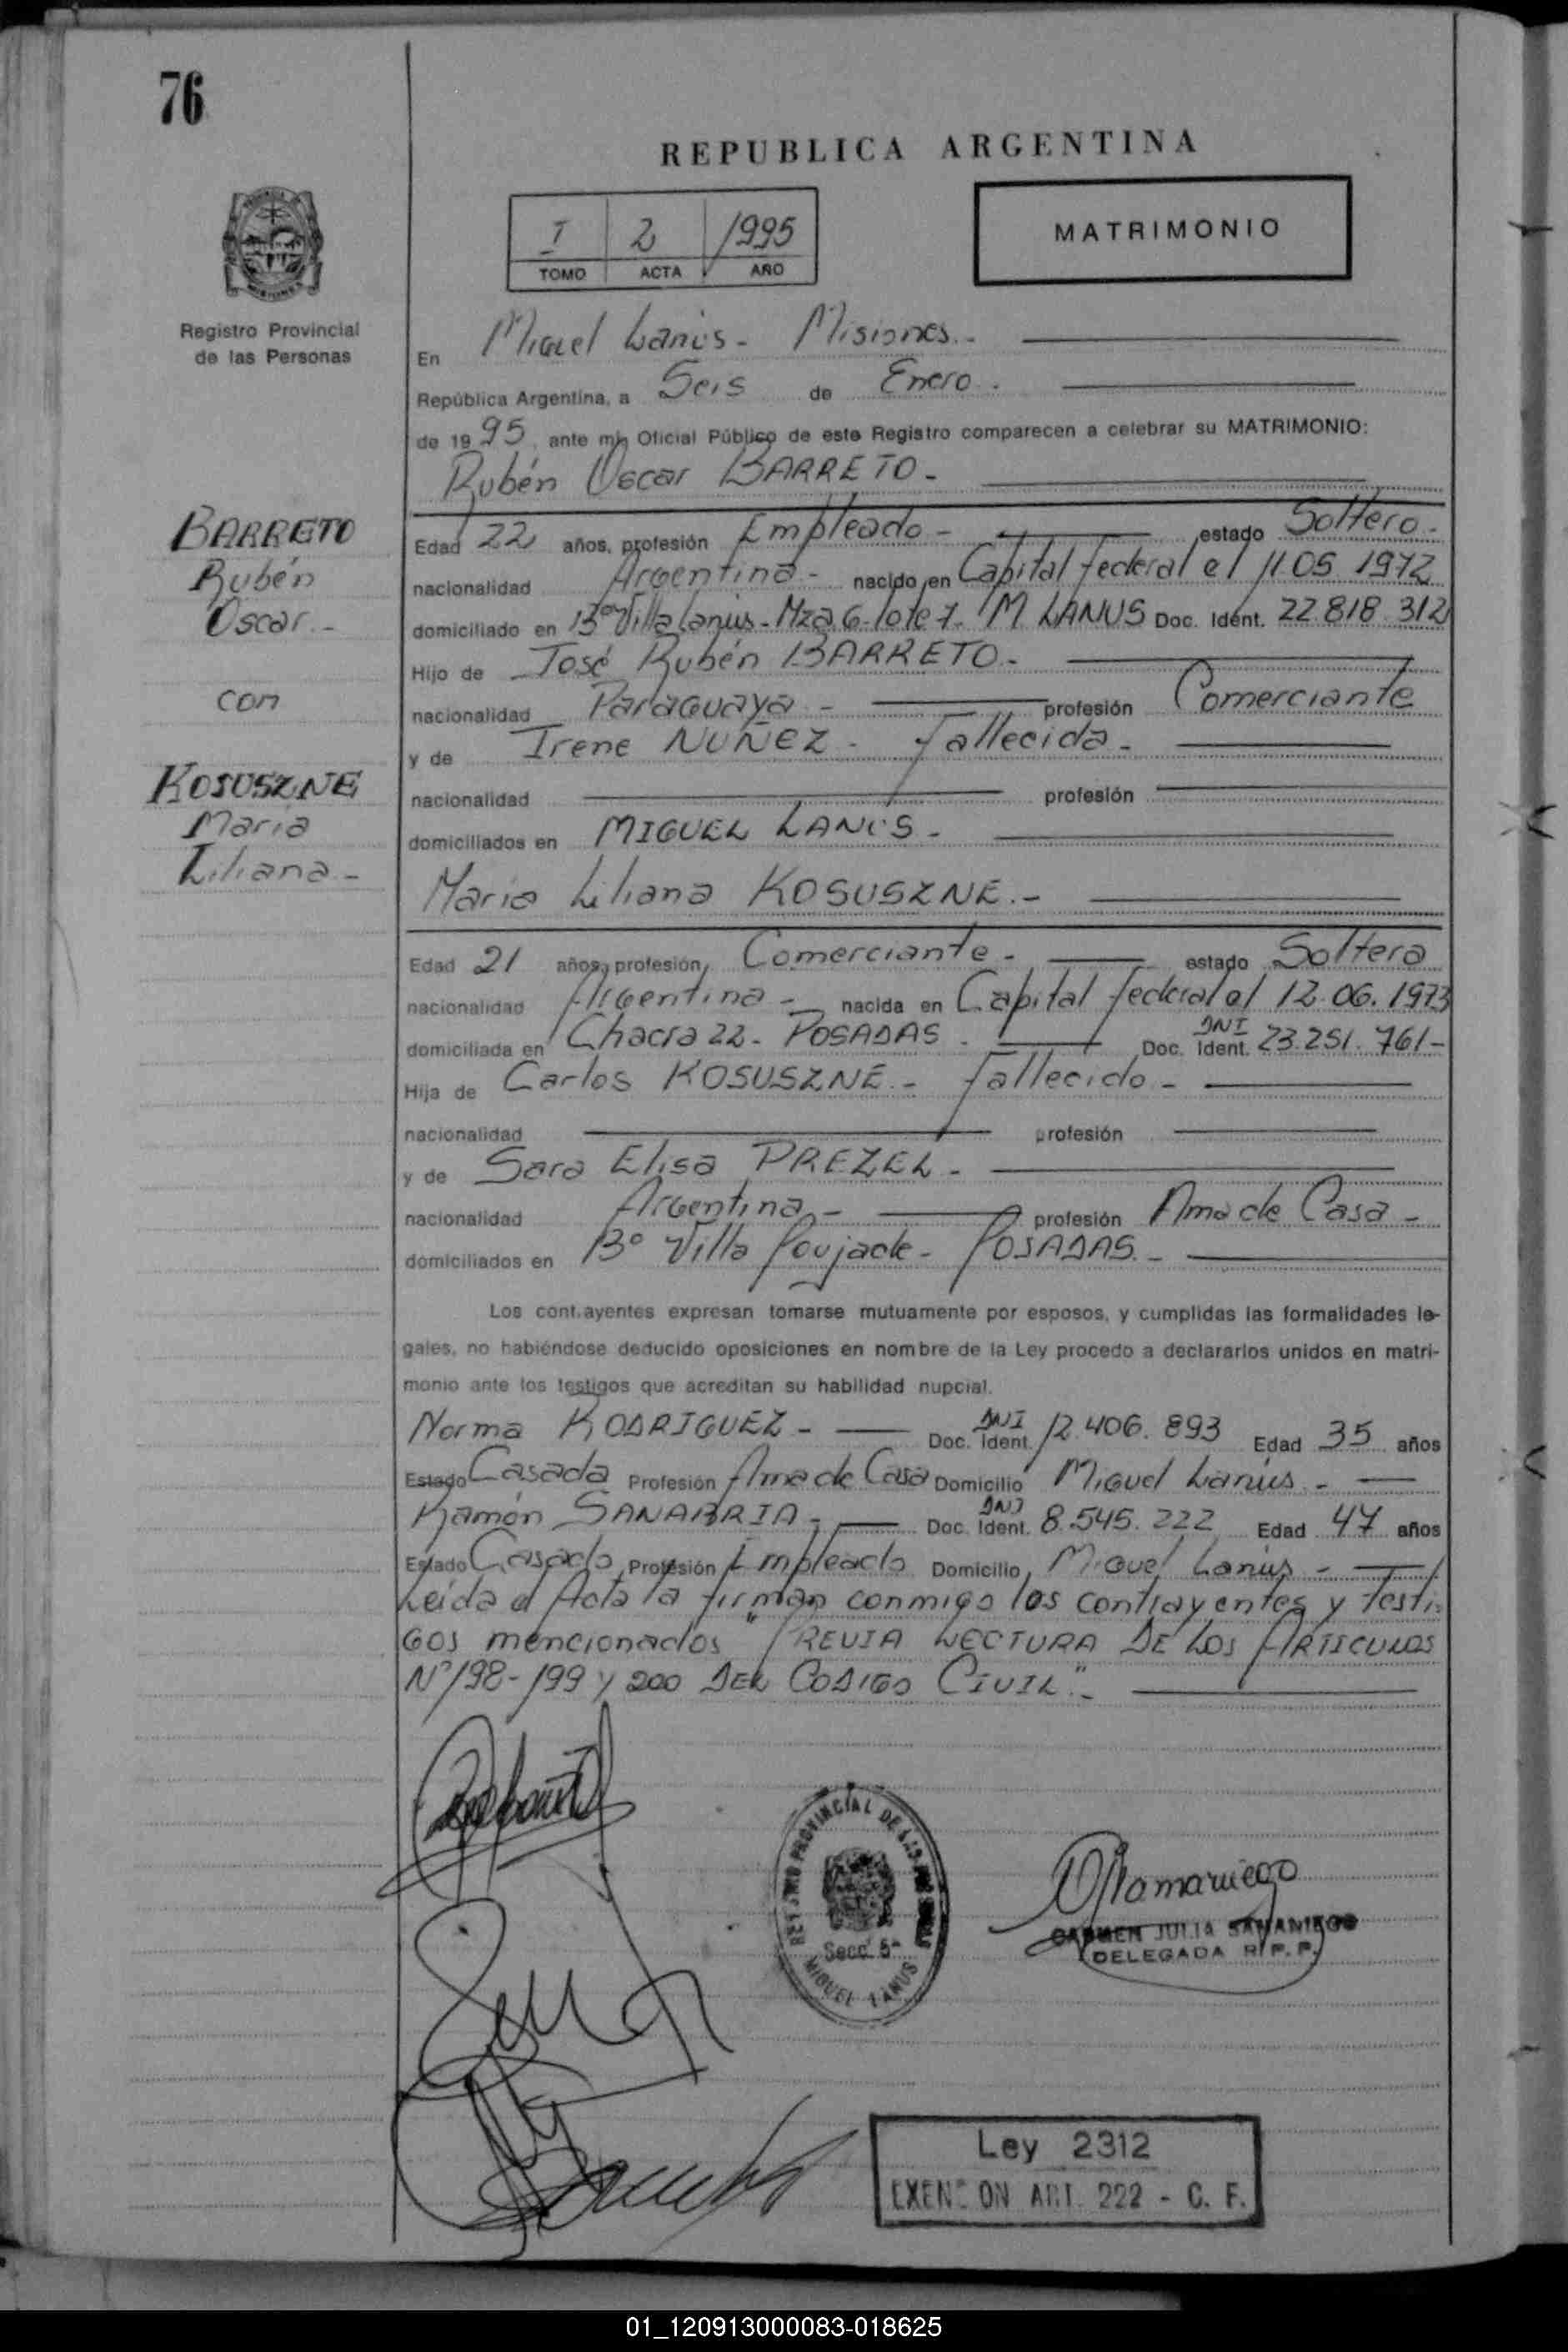 76
REPUBLICA ARGENTINA
I 2 1995
TOMO ACTA AÑO
MATRIMONIO
Registro Provincial
de las Personas
En Miguel Lanús - Misiones.-
República Argentina, a Seis de Enero.
de 1995, ante mí, Oficial Público de este Registro comparecen a celebrar su MATRIMONIO:
Rubén Oscar BARRETO -
BARRETO
Rubén
Oscar.-
con
KOSUSZNE
Maria
Liliana.-
Edad 22 años, profesión Empleado - estado Soltero -
nacionalidad Argentina - nacido en Capital federal el 11 05 1972
domiciliado en Villa Lanús - Mza. 6 - lote 7 - M LANUS Doc. Ident. 22.818.312
Hijo de José Rubén BARRETO -
nacionalidad Paraguaya - profesión Comerciante
y de Irene NUÑEZ - Fallecida -
nacionalidad profesión
domiciliados en MIGUEL LANUS -
Maria Liliana KOSUSZNE.-
Edad 21 años, profesión, Comerciante - estado Soltera
nacionalidad Argentina - nacida en Capital federal el 12.06.1973
domiciliada en Chacra 22 - POSADAS - Doc. Ident. DNI 23.251.761-
Hija de Carlos KOSUSZNE.- Fallecido -
nacionalidad profesión
y de Sara Elisa PREZEL -
nacionalidad Argentina - profesión Ama de Casa -
domiciliados en B° Villa Poujade - POSADAS.-
Los contrayentes expresan tomarse mutuamente por esposos, y cumplidas las formalidades le-
gales, no habiéndose deducido oposiciones en nombre de la Ley procedo a declararlos unidos en matri-
monio ante los testigos que acreditan su habilidad nupcial.
Norma RODRIGUEZ - Doc. Ident. DNI 12.406.893 Edad 35 años
Estado Casada Profesión Ama de Casa Domicilio Miguel Lanús -
Ramón SANABRIA - Doc. Ident. DNI 8.545.222 Edad 47 años
Estado Casado Profesión Empleado Domicilio Miguel Lanús -
Leída el Acta la firman conmigo los contrayentes y testi-
gos mencionados "PREVIA LECTURA DE LOS ARTICULOS
N° 198-199 y 200 DEL CODIGO CIVIL".-
REGISTRO PROVINCIAL DE LAS PERSONAS
Secc. 5ª
MIGUEL LANUS
CARMEN JULIA SAMANIEGO
DELEGADA R. P. P.
Ley 2312
EXENCION ART. 222 - C. F.
01_120913000083-018625